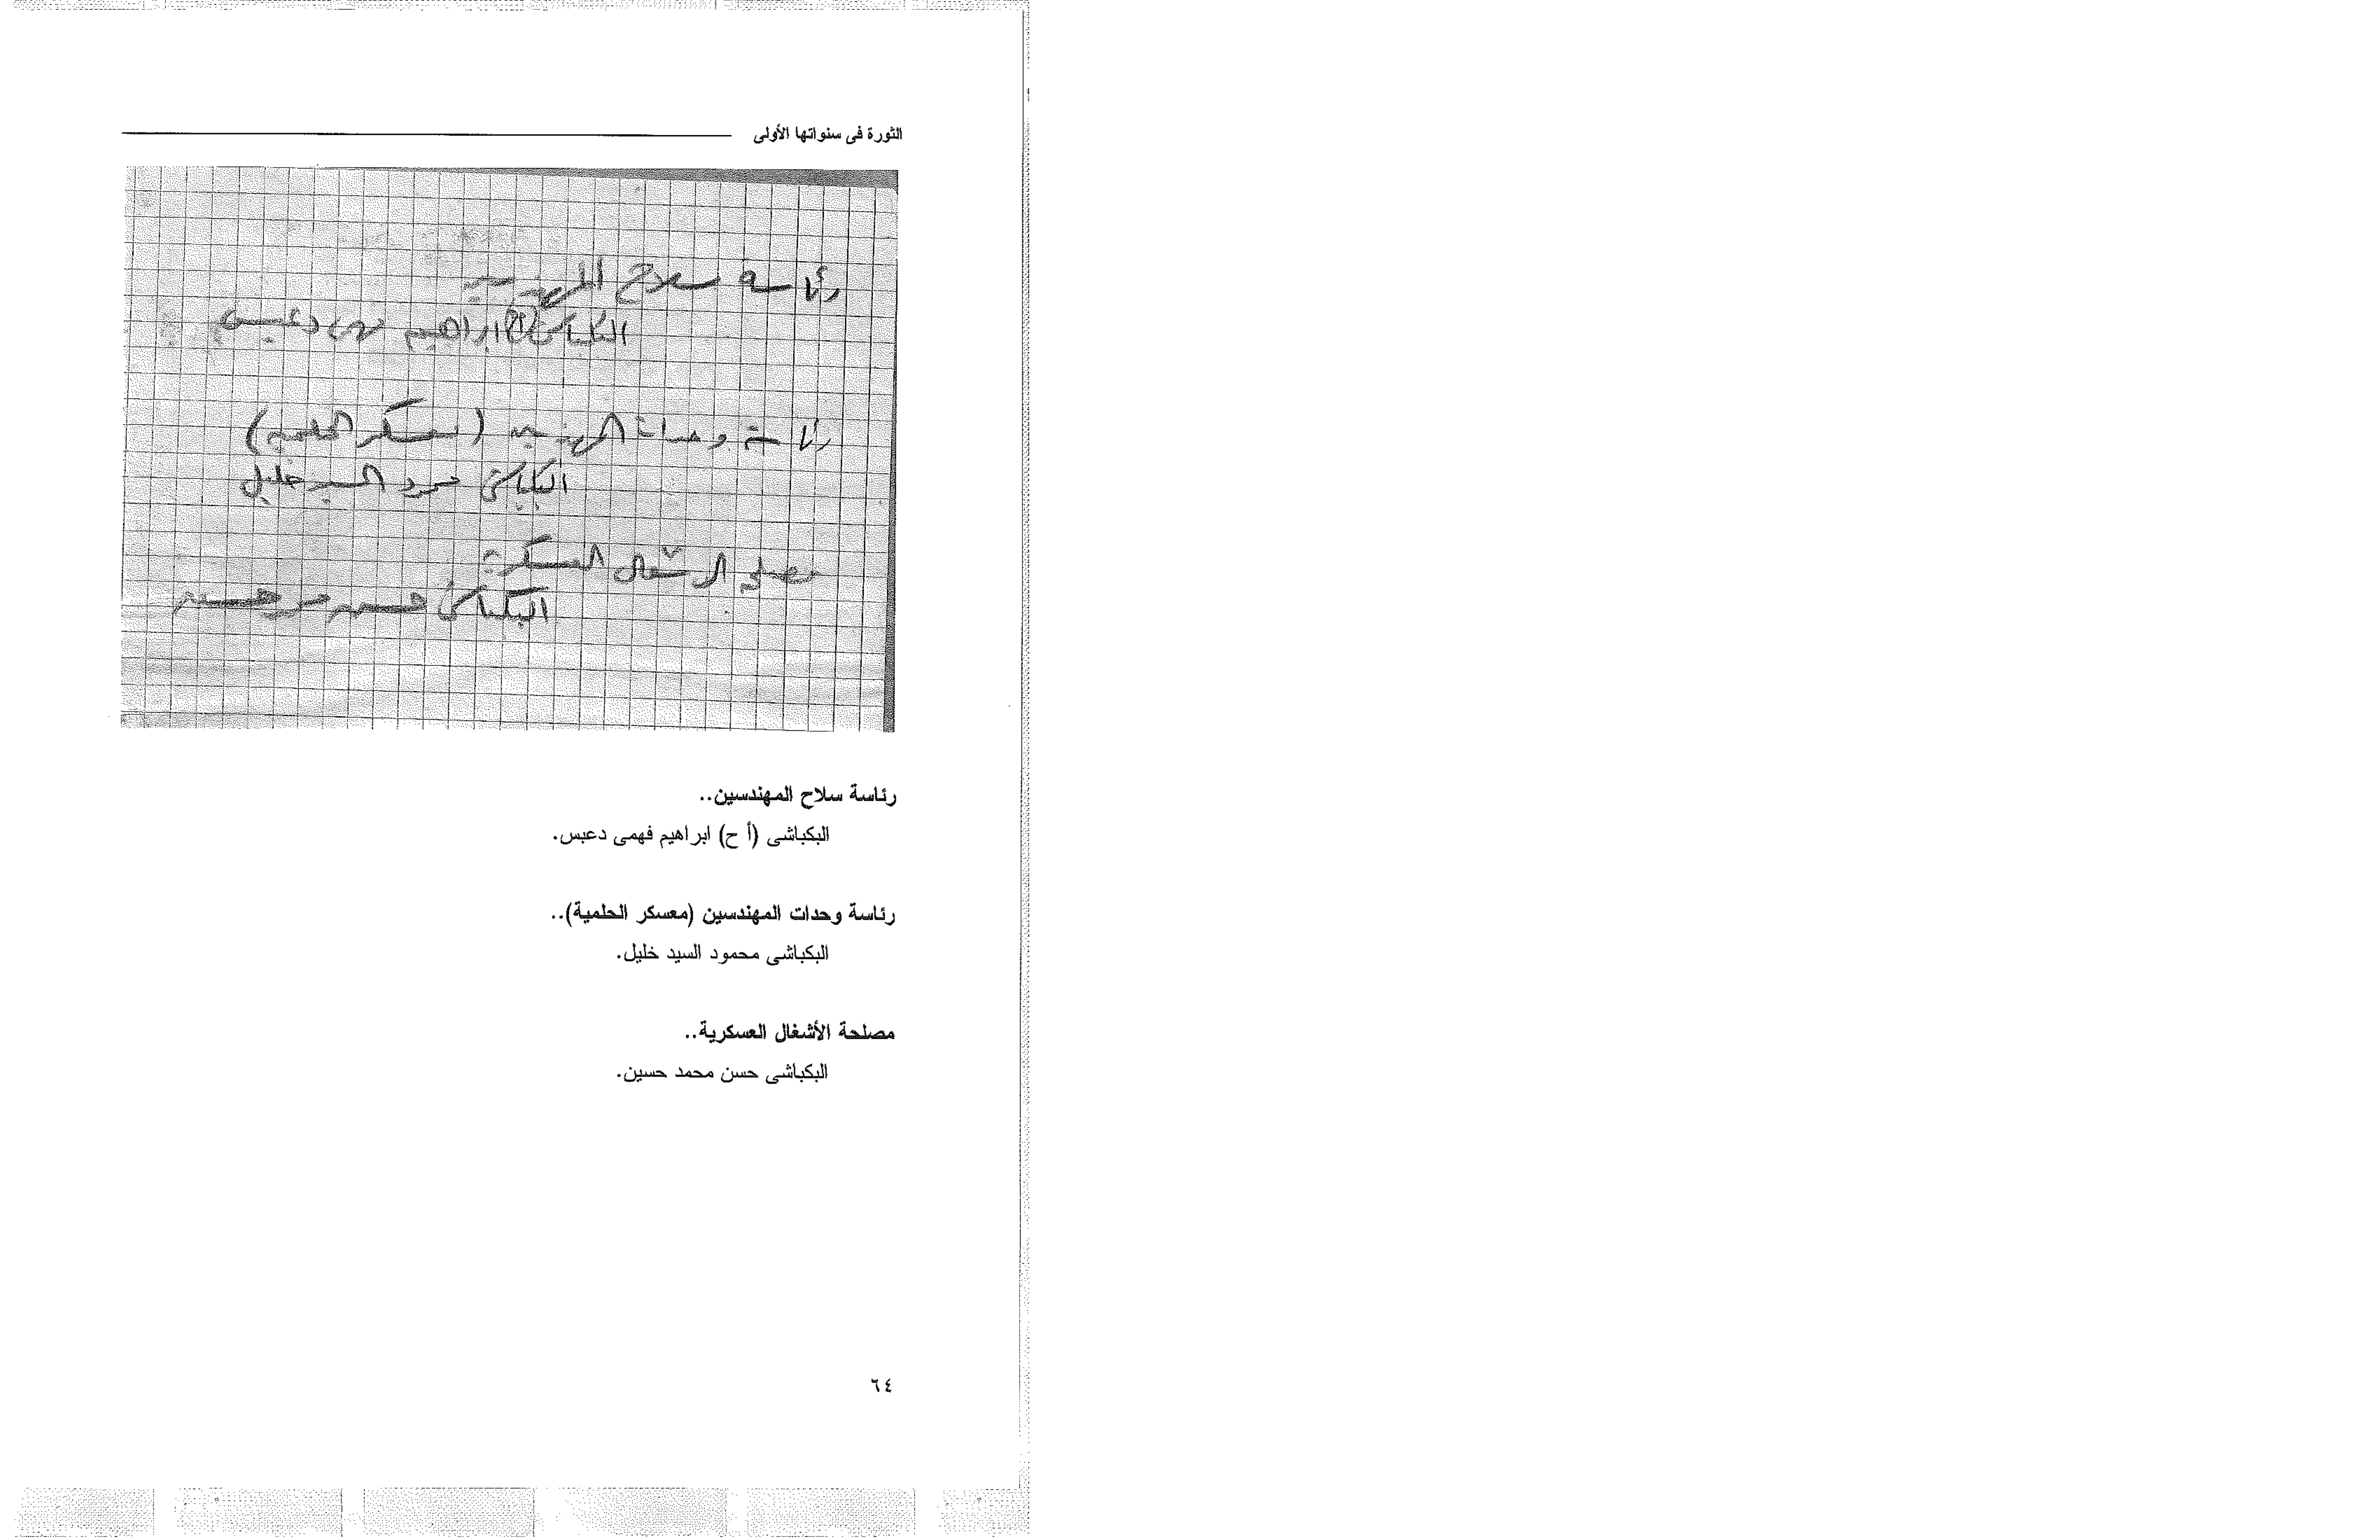 الثورة فى سنواتها الأولى
رئاسة سلاح المهندسين
البكباشى (أ ح) ابراهيم فهمى دعبس
رئاسة وحدات المهندسين (معسكر الحلمية)
البكباشى محمود السيد خليل
مصلحة الاشغال العسكرية
البكباشى حسن محمد حسين
رئاسة سلاح المهندسين..
البكباشى (أ ح) ابراهيم فهمى دعبس.
رئاسة وحدات المهندسين (معسكر الحلمية)..
البكباشى محمود السيد خليل.
مصلحة الأشغال العسكرية..
البكباشى حسن محمد حسين.
٦٤